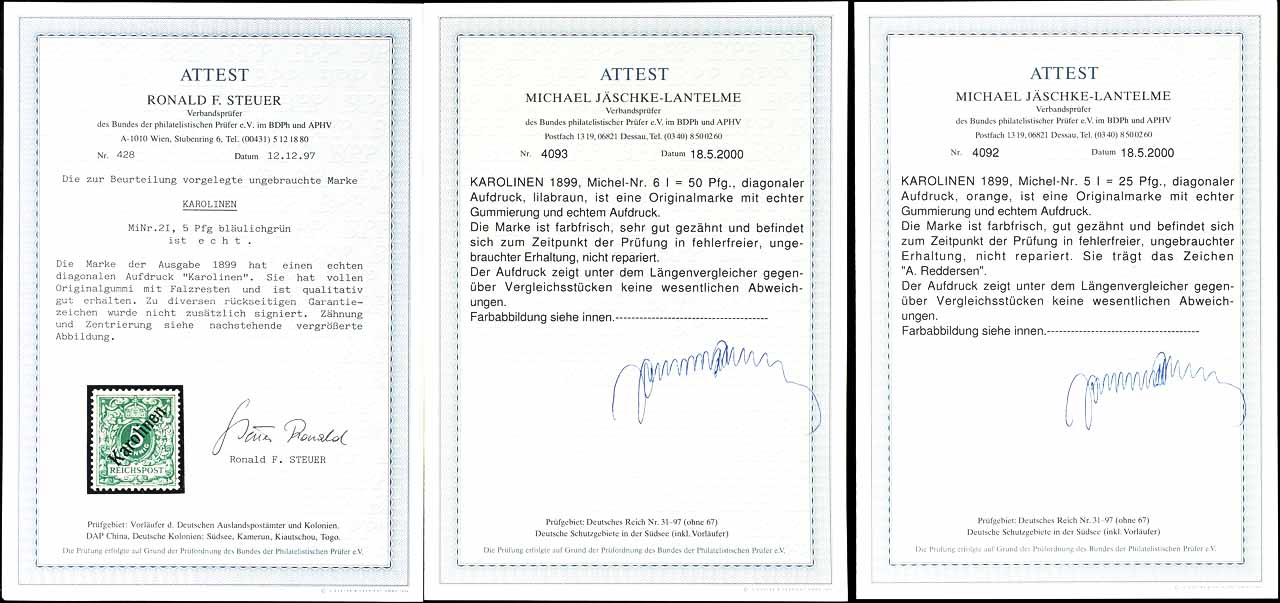 ATTEST
RONALD F. STEUER
Verbandsprüfer
des Bundes der philatelistischen Prüfer e.V. im BDPh und APHV
A-1010 Wien, Stubenring 6, Tel. (00431) 5 12 18 80
Nr. 428 Datum 12.12.97
Die zur Beurteilung vorgelegte ungebrauchte Marke
KAROLINEN
MiNr.2I, 5 Pfg bläulichgrün
ist echt.
Die Marke der Ausgabe 1899 hat einen echten
diagonalen Aufdruck "Karolinen". Sie hat vollen
Originalgummi mit Falzresten und ist qualitativ
gut erhalten. Zu diversen rückseitigen Garantie-
zeichen wurde nicht zusätzlich signiert. Zähnung
und Zentrierung siehe nachstehende vergrößerte
Abbildung.
5
Karolinen
REICHSPOST
Steuer Ronald
Ronald F. STEUER
Prüfgebiet: Vorläufer d. Deutschen Auslandspostämter und Kolonien.
DAP China, Deutsche Kolonien: Südsee, Kamerun, Kiautschou, Togo.
Die Prüfung erfolgte auf Grund der Prüfordnung des Bundes der Philatelistischen Prüfer e.V.
ATTEST
MICHAEL JÄSCHKE-LANTELME
Verbandsprüfer
des Bundes der philatelistischen Prüfer e.V. im BDPh und APHV
Postfach 13 19, 06821 Dessau, Tel. (03 40) 8 50 02 60
Nr. 4093 Datum 18.5.2000
KAROLINEN 1899, Michel-Nr. 6 I = 50 Pfg., diagonaler
Aufdruck, lilabraun, ist eine Originalmarke mit echter
Gummierung und echtem Aufdruck.
Die Marke ist farbfrisch, sehr gut gezähnt und befindet
sich zum Zeitpunkt der Prüfung in fehlerfreier, unge-
brauchter Erhaltung, nicht repariert.
Der Aufdruck zeigt unter dem Längenvergleicher gegen-
über Vergleichsstücken keine wesentlichen Abweich-
ungen.
Farbabbildung siehe innen.--------------------------------------
Prüfgebiet: Deutsches Reich Nr. 31–97 (ohne 67)
Deutsche Schutzgebiete in der Südsee (inkl. Vorläufer)
Die Prüfung erfolgte auf Grund der Prüfordnung des Bundes der Philatelistischen Prüfer e.V.
ATTEST
MICHAEL JÄSCHKE-LANTELME
Verbandsprüfer
des Bundes der philatelistischen Prüfer e.V. im BDPh und APHV
Postfach 13 19, 06821 Dessau, Tel. (03 40) 8 50 02 60
Nr. 4092 Datum 18.5.2000
KAROLINEN 1899, Michel-Nr. 5 I = 25 Pfg., diagonaler
Aufdruck, orange, ist eine Originalmarke mit echter
Gummierung und echtem Aufdruck.
Die Marke ist farbfrisch, gut gezähnt und befindet sich
zum Zeitpunkt der Prüfung in fehlerfreier, ungebrauchter
Erhaltung, nicht repariert. Sie trägt das Zeichen
"A. Reddersen".
Der Aufdruck zeigt unter dem Längenvergleicher gegen-
über Vergleichsstücken keine wesentlichen Abweich-
ungen.
Farbabbildung siehe innen.--------------------------------------
Prüfgebiet: Deutsches Reich Nr. 31–97 (ohne 67)
Deutsche Schutzgebiete in der Südsee (inkl. Vorläufer)
Die Prüfung erfolgte auf Grund der Prüfordnung des Bundes der Philatelistischen Prüfer e.V.